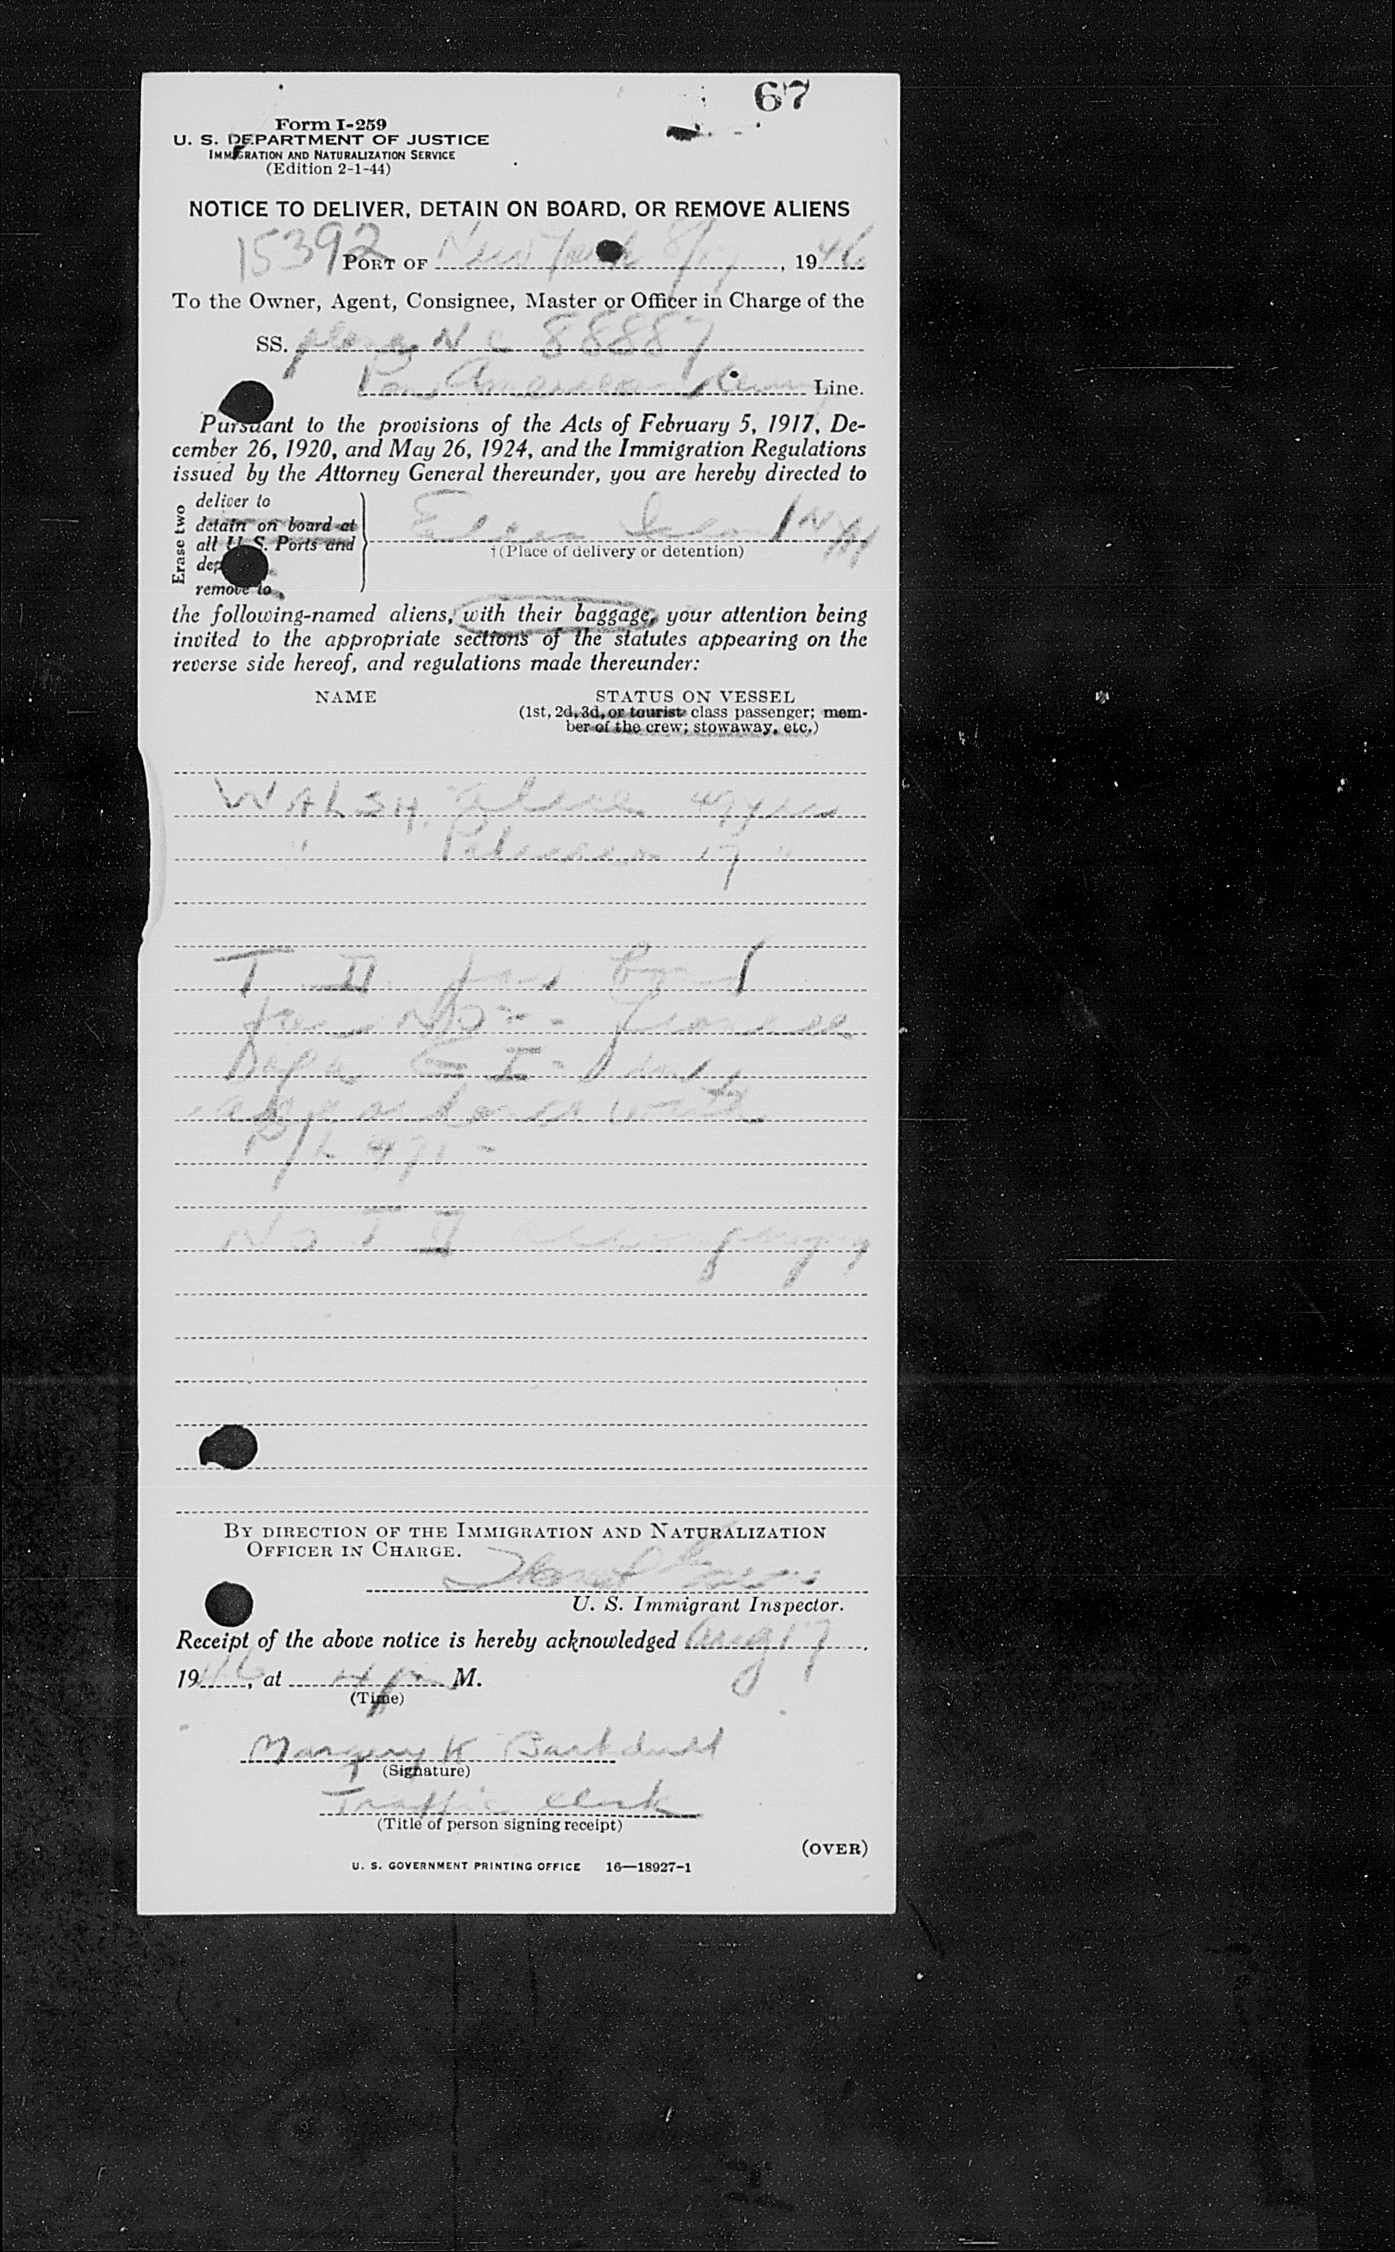 67
Form I-259
U. S. DEPARTMENT OF JUSTICE
IMMIGRATION AND NATURALIZATION SERVICE
(Edition 2-1-44)
NOTICE TO DELIVER, DETAIN ON BOARD, OR REMOVE ALIENS
15392 PORT OF New York 8/17, 1946
To the Owner, Agent, Consignee, Master or Officer in Charge of the
SS. plane NC 88887
Pan American Line.
Pursuant to the provisions of the Acts of February 5, 1917, De-
cember 26, 1920, and May 26, 1924, and the Immigration Regulations
issued by the Attorney General thereunder, you are hereby directed to
Erase two
deliver to
detain on board at
all U. S. Ports and
remove to
Ellis Island NYH
†(Place of delivery or detention)
the following-named aliens, with their baggage, your attention being
invited to the appropriate sections of the statutes appearing on the
reverse side hereof, and regulations made thereunder:
NAME STATUS ON VESSEL
(1st, 2d, 3d, or tourist class passenger; mem-
ber of the crew; stowaway, etc.)
WALSH, 49 yrs
" Patricia 17 "
T.D.
P/L 471 -
No T D accompanying
BY DIRECTION OF THE IMMIGRATION AND NATURALIZATION
OFFICER IN CHARGE.
U. S. Immigrant Inspector.
Receipt of the above notice is hereby acknowledged Aug 17.
1946, at 4 p M.
(Time)
Margery K
(Signature)
Traffic Clerk
(Title of person signing receipt)
(OVER)
U. S. GOVERNMENT PRINTING OFFICE 16—18927-1